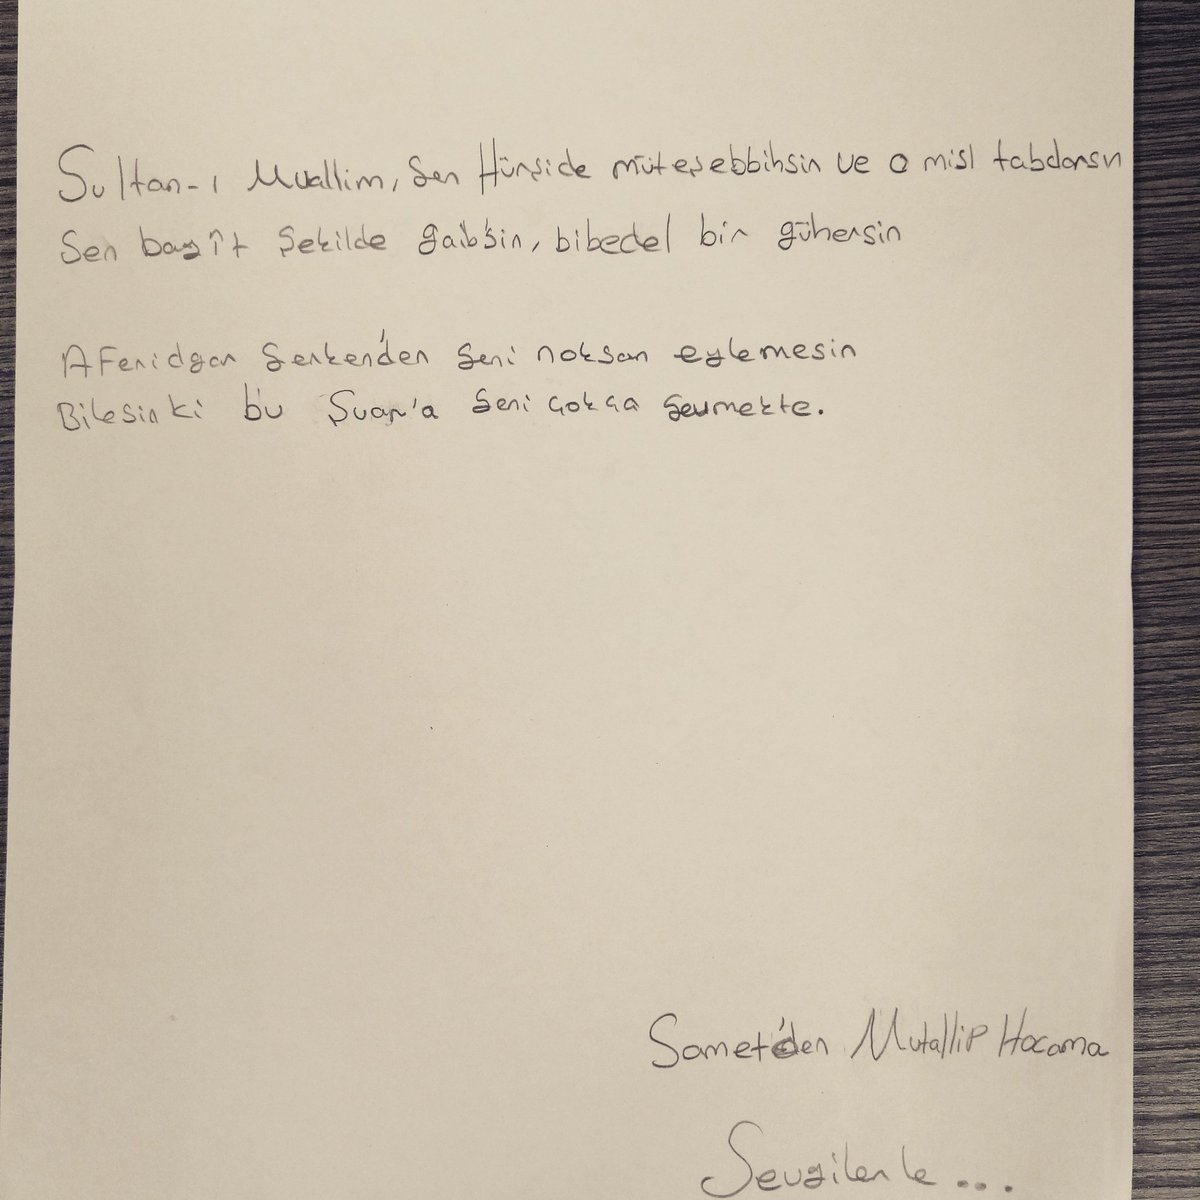 Sultan-ı Muallim, Sen Hürşide müteşebbihsin ve o misl tabdansın
Sen basît şekilde gaibsin, bibedel bir gühersin
Aferidgar Serkerden seni noksan eylemesin
Bilesinki bu Şuara seni çokça sevmekte.
Samet'den Mutallip Hocama
Sevgilerle ....